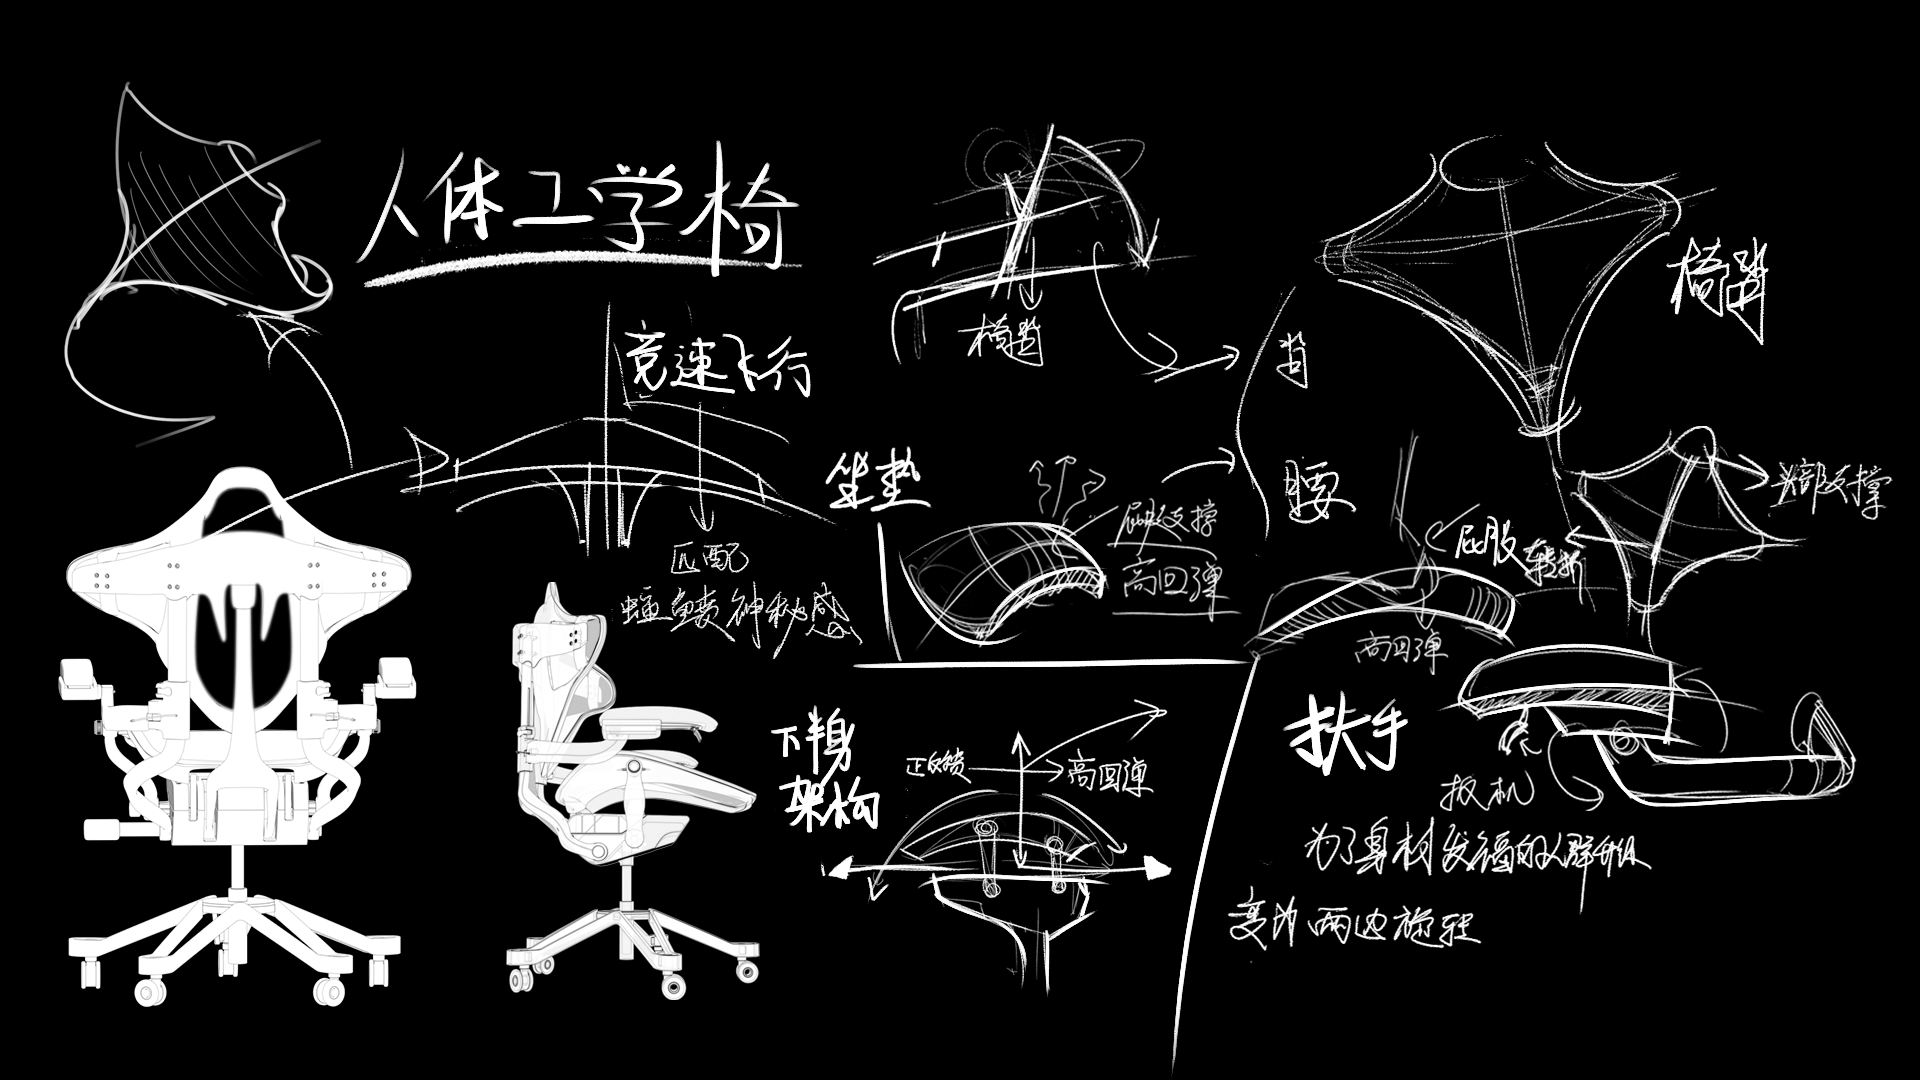 人体工学椅
竞速飞行
匹配
蝠鲼神秘感
椅背
椅背
背
腰
坐垫
屁股支撑
高回弹
头部支撑
屁股
转折
高回弹
下半身
架构
正反馈
高回弹
扶手
扳机
为了身材发福的人群升级
变为两边旋转